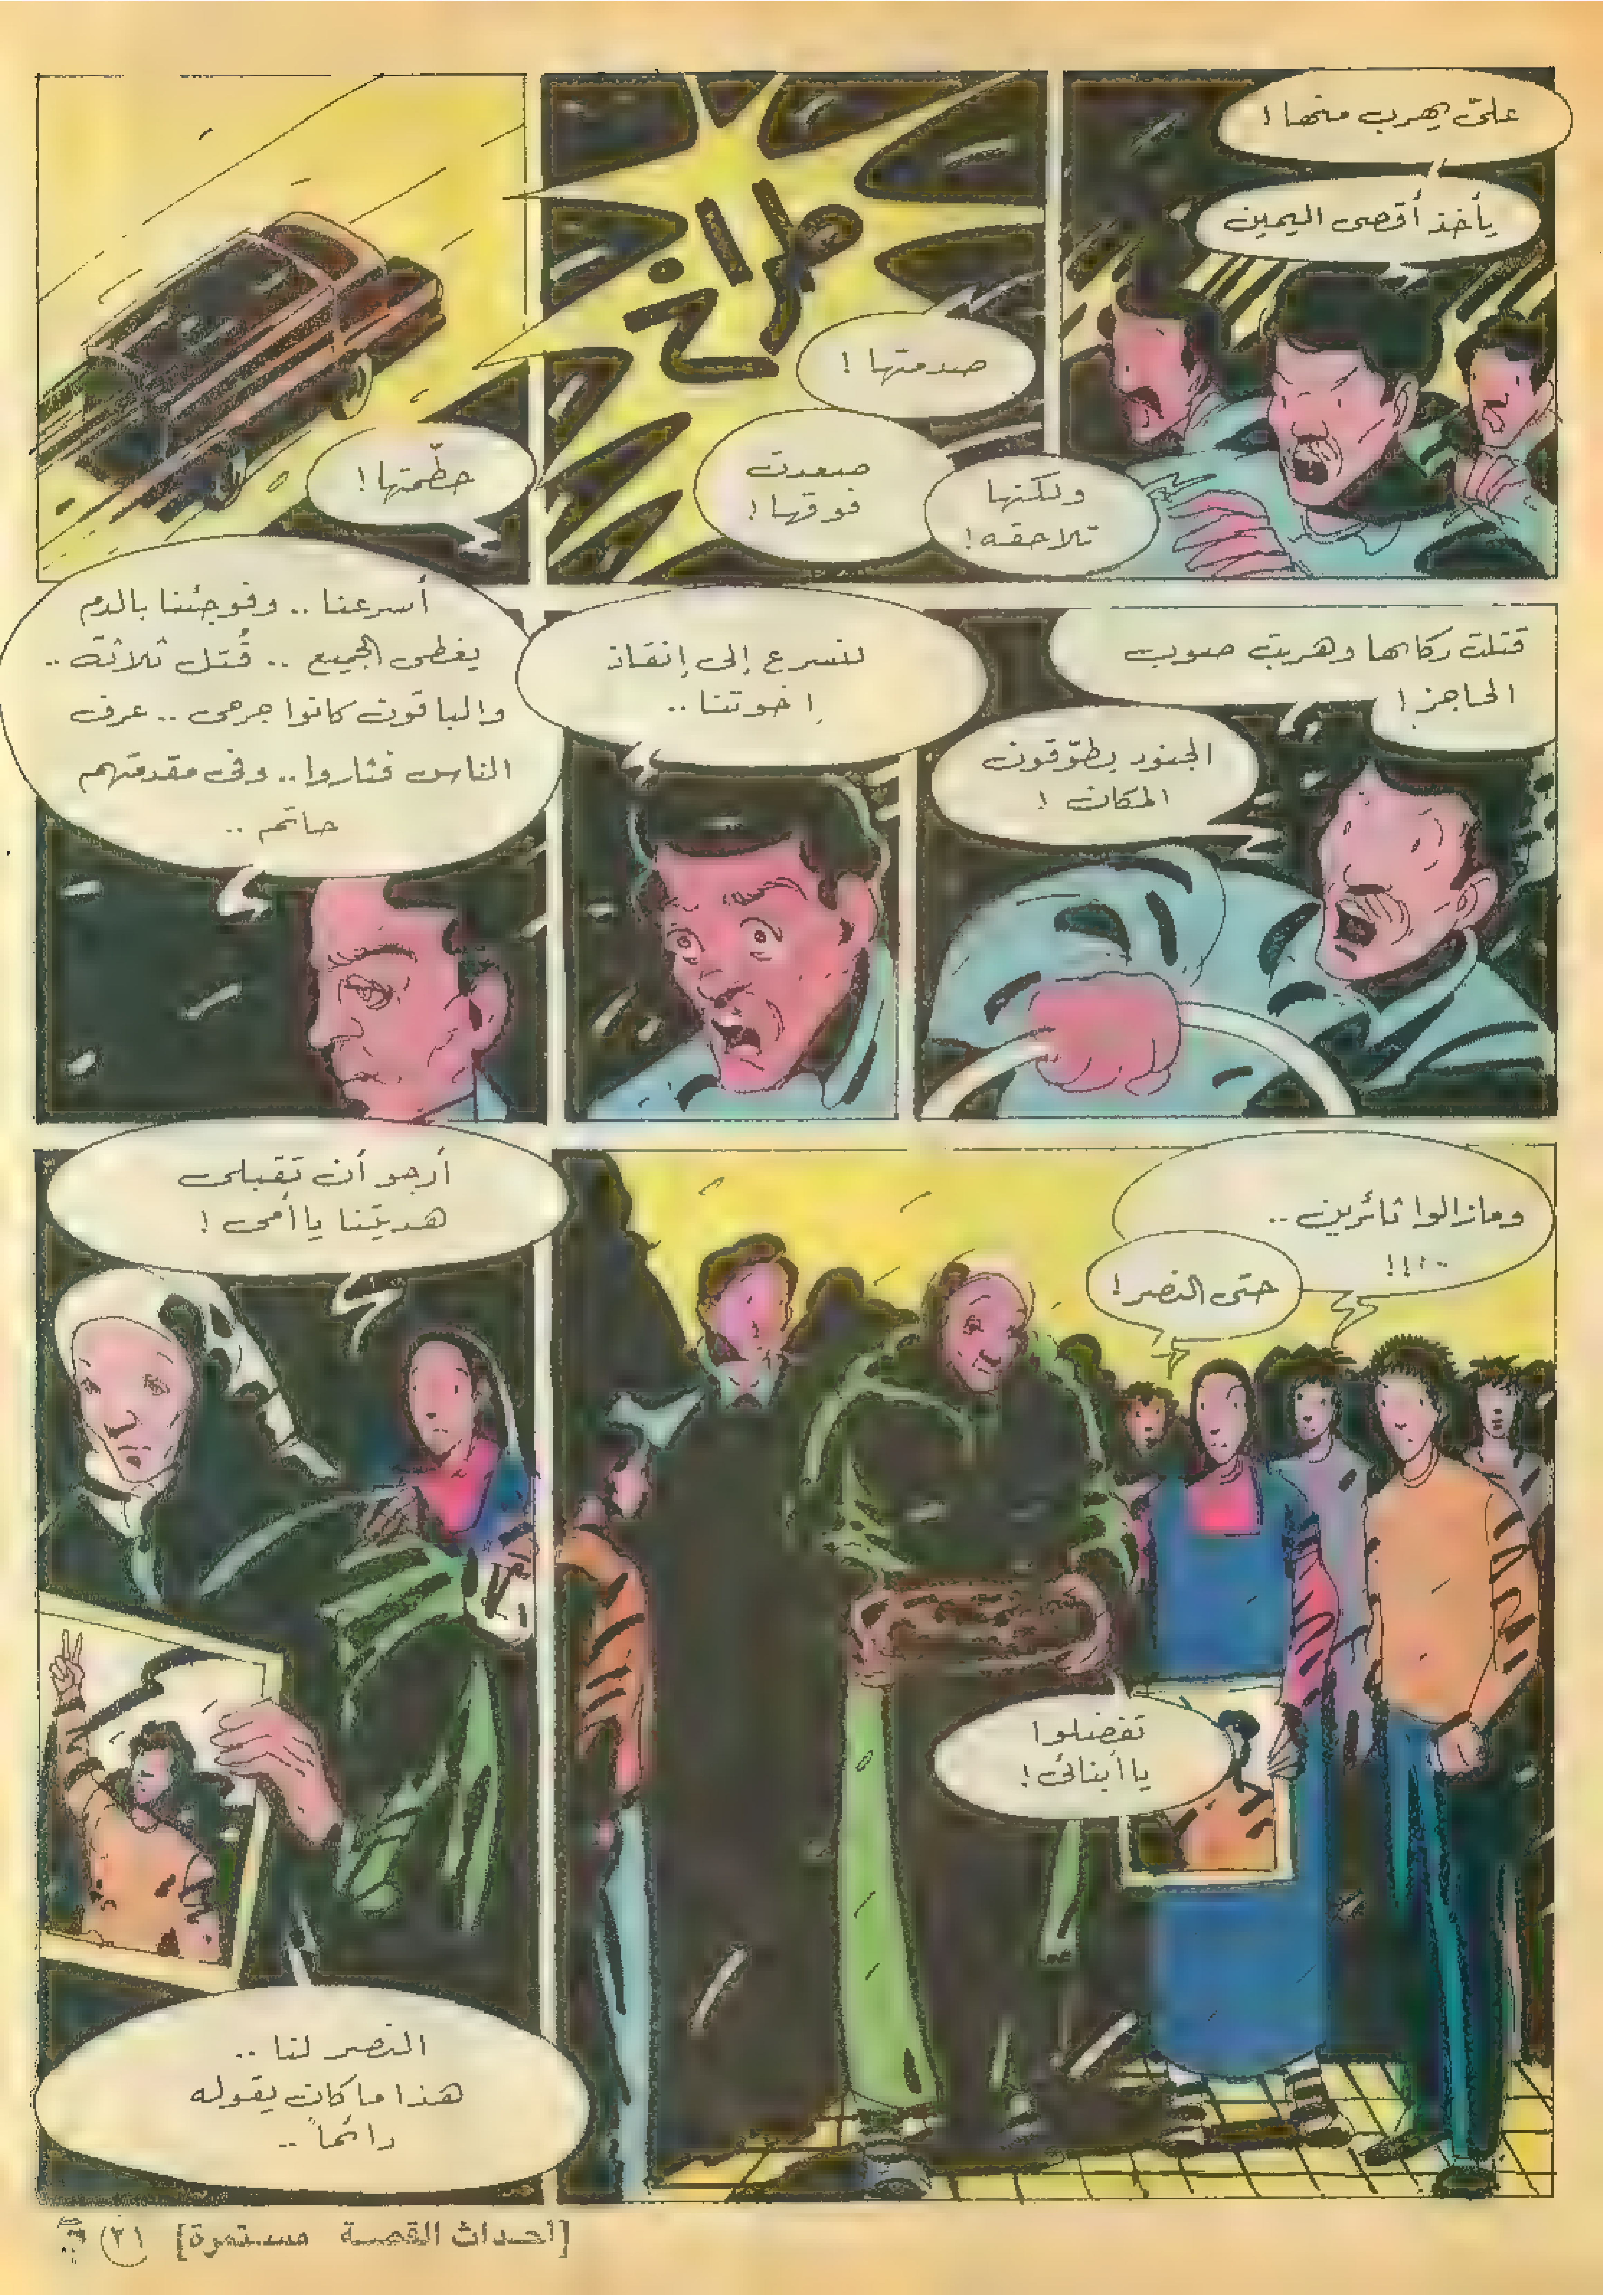 عليّ يهرب منها!
يأخذ أقصى اليمين
ولكنها
تلاحقه!
طرا..اخ
صدمتها!
صعدت
فوقها!
حطّمتها!
قتلت ركابها وهربت صوب
الحاجز!
الجنود يطوّقون
المكان!
لنسرع إلى إنقاذ
إخوتنا..
أسرعنا.. وفوجئنا بالدم
يغطى الجميع.. قُتل ثلاثة..
والباقون كانوا جرحى.. عرف
الناس فثاروا.. وفى مقدمتهم
حاتم..
ومازالوا ثائرين..
حتى النصر!
تفضلوا
يا أبنائى!
أرجو أن تقبلى
هديتنا يا أمى!
النصر لنا..
هذا ما كان يقوله
دائماً..
[أحداث القصة مستمرة] (٣١)